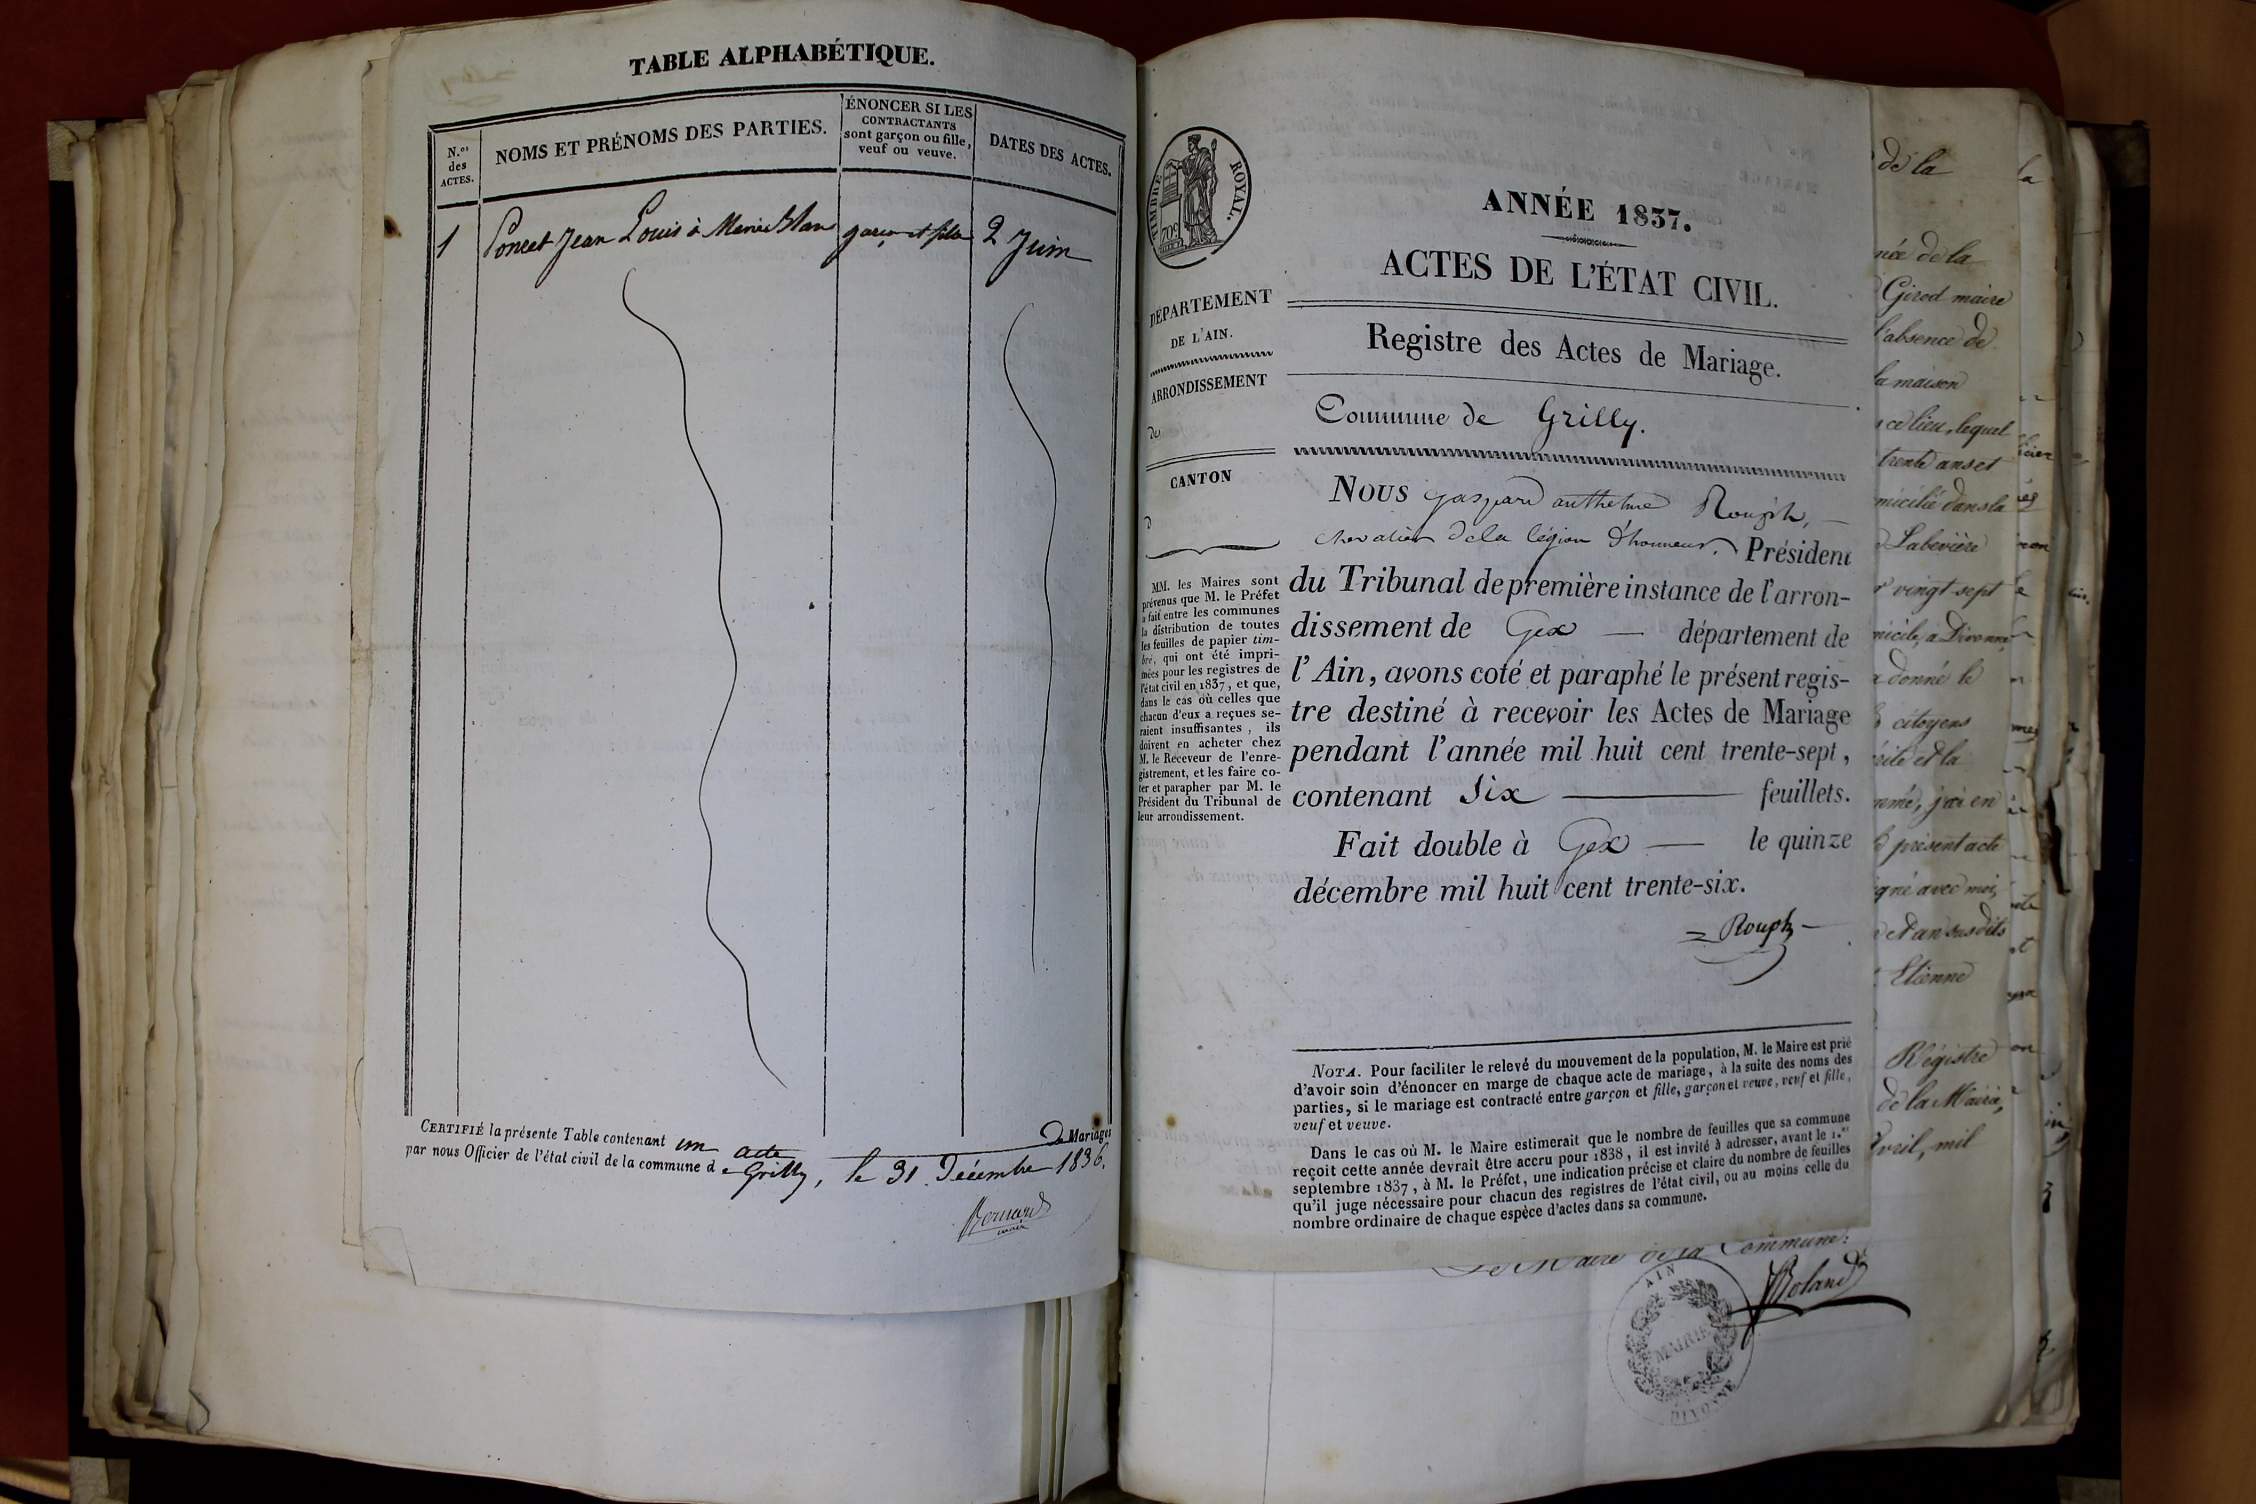 TABLE ALPHABÉTIQUE.
N.os des ACTES.
NOMS ET PRÉNOMS DES PARTIES.
ÉNONCER SI LES
CONTRACTANTS
sont garçon ou fille,
veuf ou veuve.
DATES DES ACTES.
1 Poncet Jean Louis à Marie Blanc garçon et fille 2 Juin
CERTIFIÉ la présente Table contenant un acte de Mariages
par nous Officier de l'état civil de la commune de Grilly, le 31 Décembre 1836.
maire
TIMBRE ROYAL.
70c
DÉPARTEMENT
DE L'AIN.
ARRONDISSEMENT
de
CANTON
d
MM. les Maires sont
prévenus que M. le Préfet
a fait entre les communes
la distribution de toutes
les feuilles de papier tim-
bré, qui ont été impri-
mées pour les registres de
l'état civil en 1837, et que,
dans le cas où celles que
chacun d'eux a reçues se-
raient insuffisantes, ils
doivent en acheter chez
M. le Receveur de l'enre-
gistrement, et les faire co-
ter et parapher par M. le
Président du Tribunal de
leur arrondissement.
ANNÉE 1837.
ACTES DE L'ÉTAT CIVIL.
Registre des Actes de Mariage.
Commune de Grilly.
Nous Gaspard anthelme Rouph,
chevalier de la légion d'honneur. Président
du Tribunal de première instance de l'arron-
dissement de Gex — département de
l'Ain, avons coté et paraphé le présent regis-
tre destiné à recevoir les Actes de Mariage
pendant l'année mil huit cent trente-sept,
contenant Six — feuillets.
Fait double à Gex — le quinze
décembre mil huit cent trente-six.
Rouph
NOTA. Pour faciliter le relevé du mouvement de la population, M. le Maire est prié
d'avoir soin d'énoncer en marge de chaque acte de mariage, à la suite des noms des
parties, si le mariage est contracté entre garçon et fille, garçon et veuve, veuf et fille,
veuf et veuve.
Dans le cas où M. le Maire estimerait que le nombre de feuilles que sa commune
reçoit cette année devrait être accru pour 1838, il est invité à adresser, avant le 1.er
septembre 1837, à M. le Préfet, une indication précise et claire du nombre de feuilles
qu'il juge nécessaire pour chacun des registres de l'état civil, ou au moins celle du
nombre ordinaire de chaque espèce d'actes dans sa commune.
Le Maire de la Commune:
Roland
AIN
MAIRIE
DIVONNE
de la
née de la
Girod maire
l'absence de
la maison
ce lieu, lequel
trente ans et
micilié dans la
Labevière
vingt-sept
micilié, à Divonne
donné le
citoyens
et la
j'ai en
présent acte
gné avec moi,
et an susdits
Etienne
Régistre
de la Mairie,
avril, mil